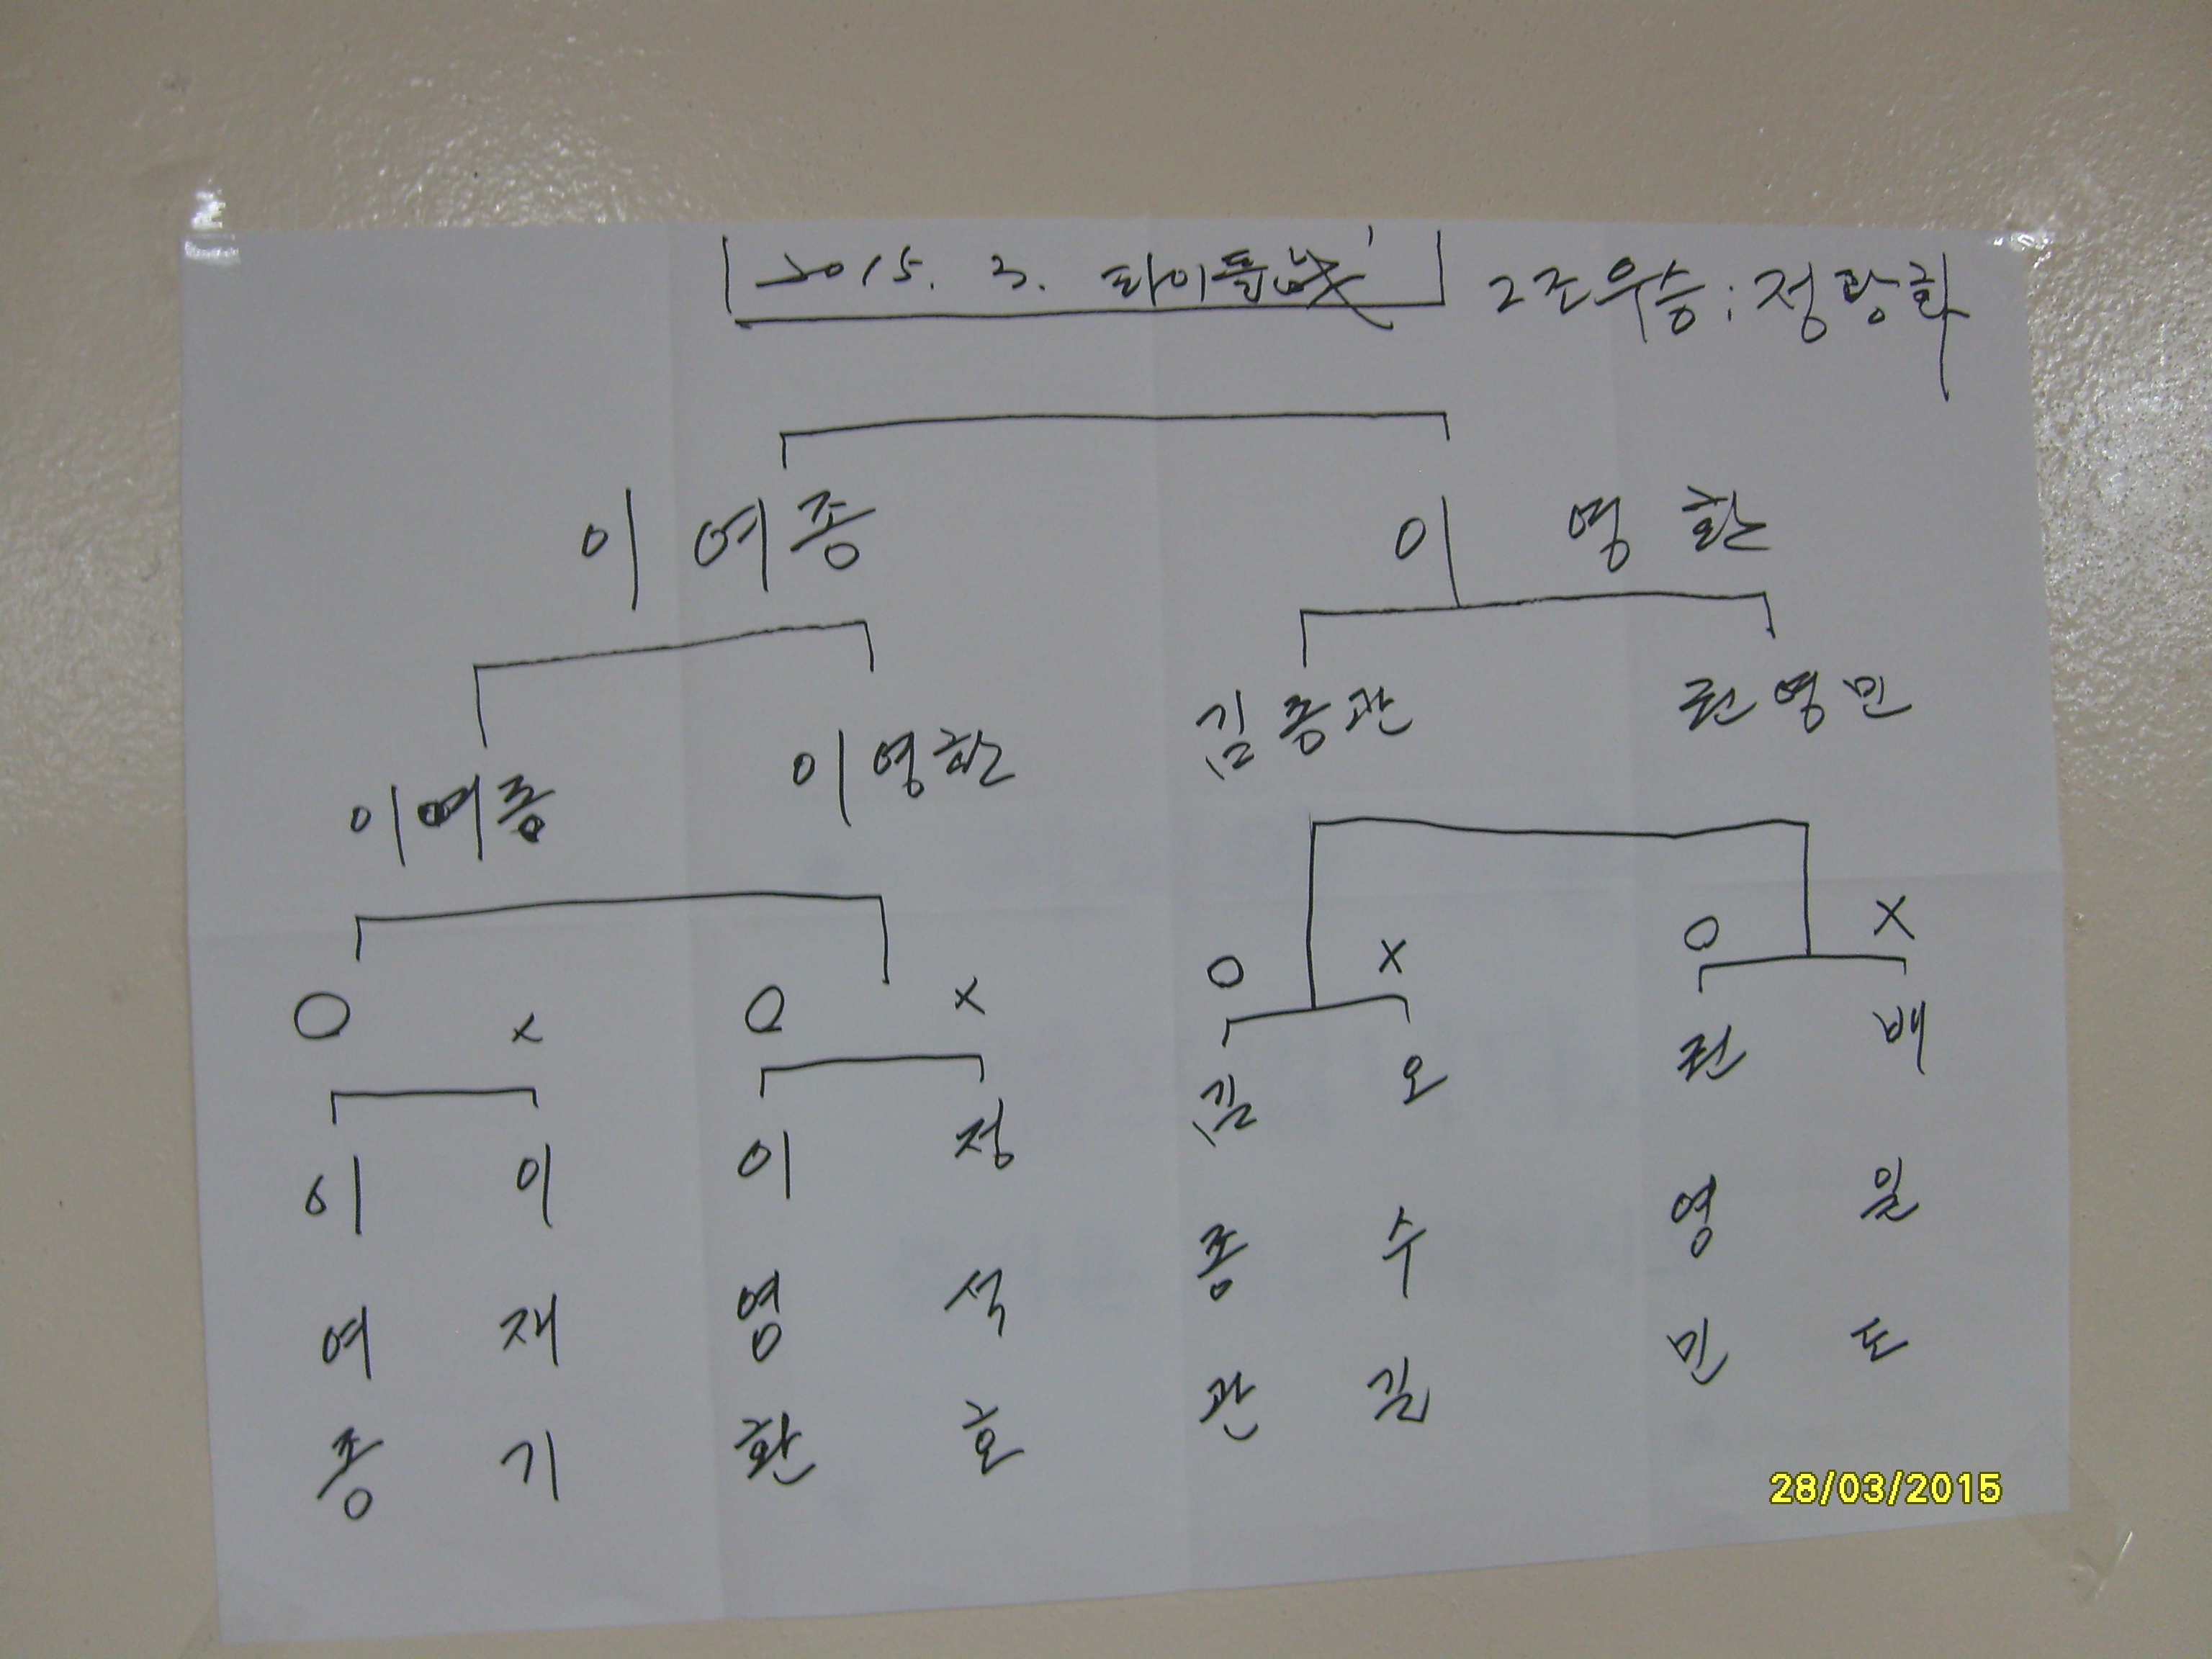 2015. 3. 타이틀戰 2조우승 : 정광화
이여종 이영환
이여종 이영환 김종관 권영민
O x O x O x O x
이 이 이 정 김 오 권 배
여 재 영 석 종 수 영 일
종 기 환 호 관 길 민 도
28/03/2015